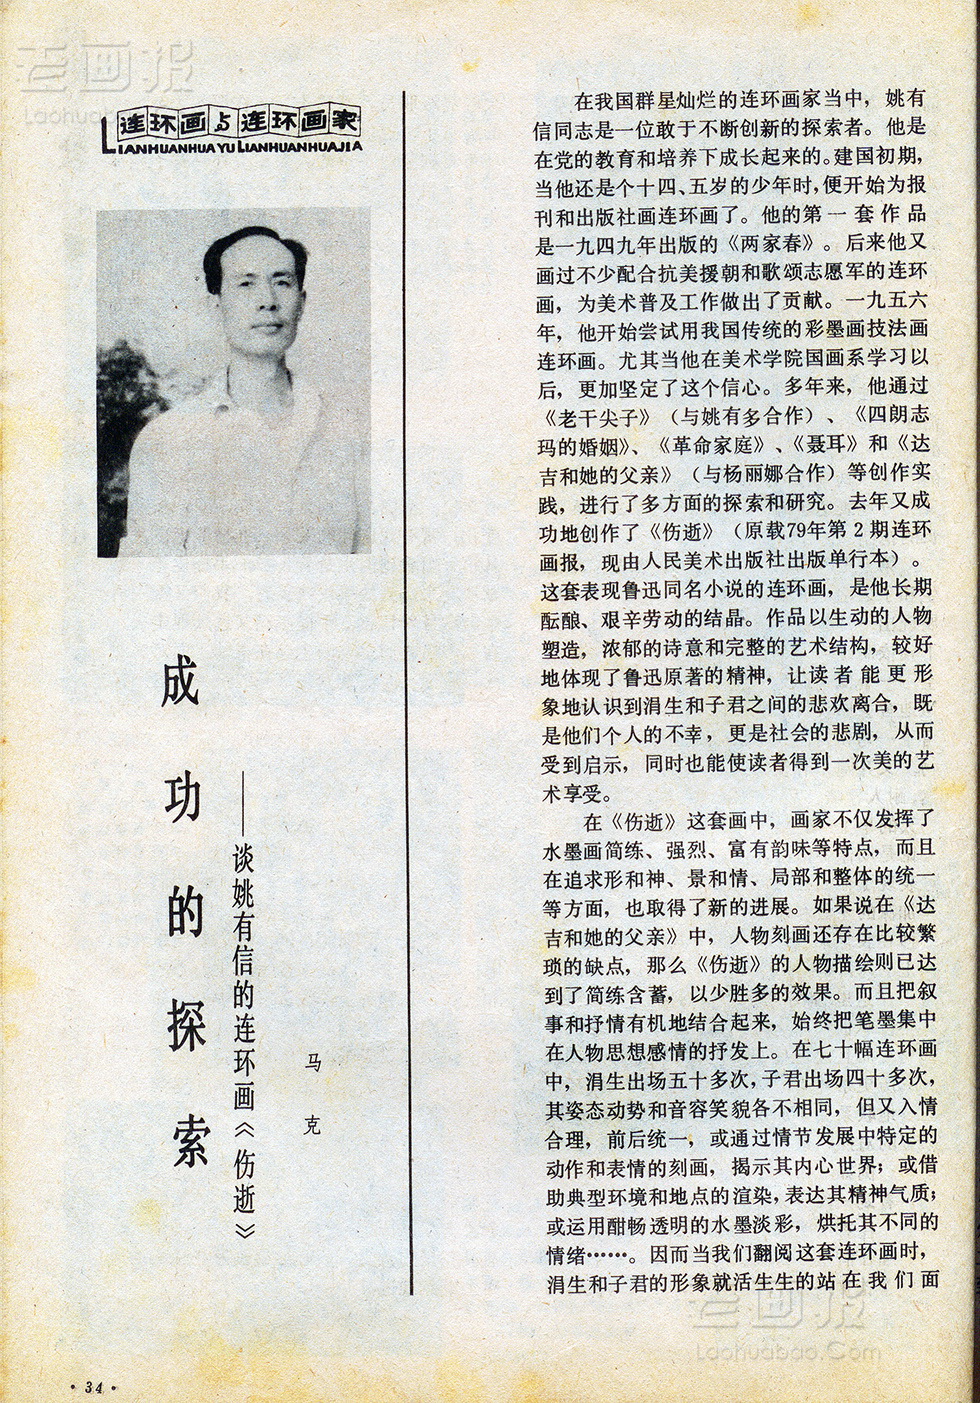 老画报
Laohuabao.Com
连环画与连环画家
LIANHUANHUA YU LIANHUANHUAJIA
成功的探索
——谈姚有信的连环画《伤逝》
马克
在我国群星灿烂的连环画家当中，姚有
信同志是一位敢于不断创新的探索者。他是
在党的教育和培养下成长起来的。建国初期，
当他还是个十四、五岁的少年时，便开始为报
刊和出版社画连环画了。他的第一套作品
是一九四九年出版的《两家春》。后来他又
画过不少配合抗美援朝和歌颂志愿军的连环
画，为美术普及工作做出了贡献。一九五六
年，他开始尝试用我国传统的彩墨画技法画
连环画。尤其当他在美术学院国画系学习以
后，更加坚定了这个信心。多年来，他通过
《老干尖子》（与姚有多合作）、《四朗志
玛的婚姻》、《革命家庭》、《聂耳》和《达
吉和她的父亲》（与杨丽娜合作）等创作实
践，进行了多方面的探索和研究。去年又成
功地创作了《伤逝》（原载79年第2期连环
画报，现由人民美术出版社出版单行本）。
这套表现鲁迅同名小说的连环画，是他长期
酝酿、艰辛劳动的结晶。作品以生动的人物
塑造，浓郁的诗意和完整的艺术结构，较好
地体现了鲁迅原著的精神，让读者能更形
象地认识到涓生和子君之间的悲欢离合，既
是他们个人的不幸，更是社会的悲剧，从而
受到启示，同时也能使读者得到一次美的艺
术享受。
在《伤逝》这套画中，画家不仅发挥了
水墨画简练、强烈、富有韵味等特点，而且
在追求形和神、景和情、局部和整体的统一
等方面，也取得了新的进展。如果说在《达
吉和她的父亲》中，人物刻画还存在比较繁
琐的缺点，那么《伤逝》的人物描绘则已达
到了简练含蓄，以少胜多的效果。而且把叙
事和抒情有机地结合起来，始终把笔墨集中
在人物思想感情的抒发上。在七十幅连环画
中，涓生出场五十多次，子君出场四十多次，
其姿态动势和音容笑貌各不相同，但又入情
合理，前后统一，或通过情节发展中特定的
动作和表情的刻画，揭示其内心世界；或借
助典型环境和地点的渲染，表达其精神气质；
或运用酣畅透明的水墨淡彩，烘托其不同的
情绪……。因而当我们翻阅这套连环画时，
涓生和子君的形象就活生生的站在我们面
老画报
Laohuabao.Com
·34·